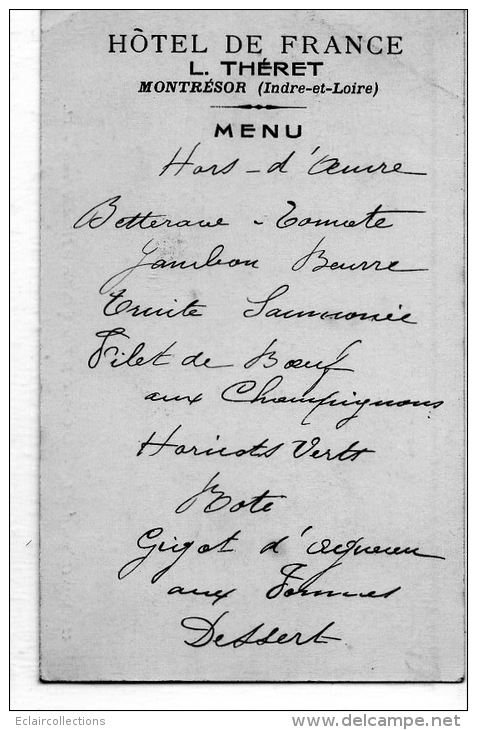 HÔTEL DE FRANCE
L. THÉRET
MONTRÉSOR (Indre-et-Loire)
MENU
Hors-d'Œuvre
Betterave - Tomate
Jambon Beurre
Truite Saumonée
Filet de Bœuf
aux Champignons
Haricots Verts
Rôti
Gigot d'agneau
aux Pommes
Dessert
Eclaircollections
www.delcampe.net